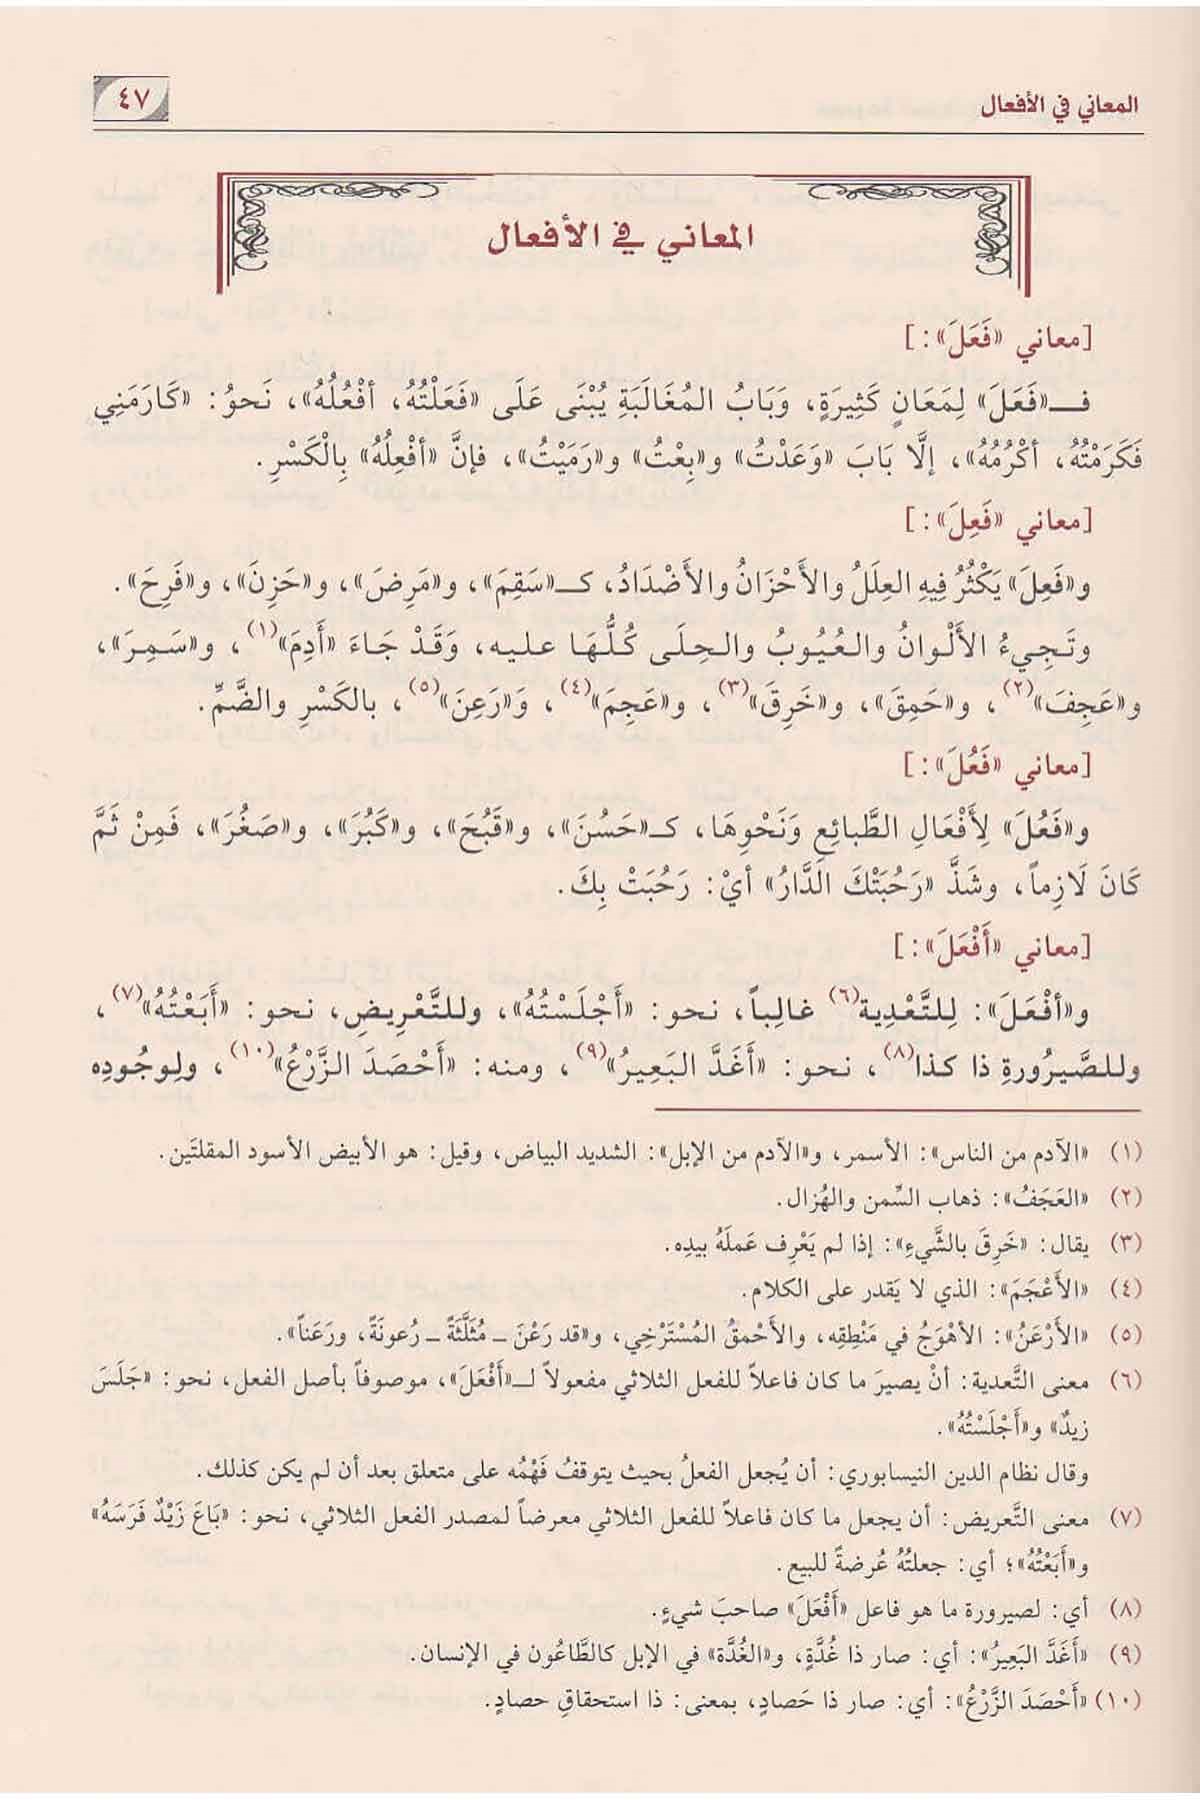 المعاني في الأفعال
٤٧
المعاني في الأفعال
[معاني «فَعَلَ»:]
فـ«فَعَلَ» لِمَعَانٍ كَثِيرَةٍ، وَبَابُ المُغَالَبَةِ يُبْنَى عَلَى «فَعَلْتُهُ، أفْعُلُهُ»، نَحوُ: «كَارَمَنِي
فَكَرَمْتُهُ، أكْرُمُهُ»، إلَّا بَابَ «وَعَدْتُ» و«بِعْتُ» و«رَمَيْتُ»، فإنَّ «أفْعِلُهُ» بِالْكَسْرِ.
[معاني «فَعِلَ»:]
و«فَعِلَ» يَكْثُرُ فِيهِ العِلَلُ والأَحْزَانُ والأَضْدَادُ، كـ«سَقِمَ»، و«مَرِضَ»، و«حَزِنَ»، و«فَرِحَ».
وتَجِيءُ الأَلْوانُ والعُيُوبُ والحِلَى كُلُّهَا عليه، وَقَدْ جَاءَ «أَدِمَ»(١)، و«سَمِرَ»،
و«عَجِفَ»(٢)، و«حَمِقَ»، و«خَرِقَ»(٣)، و«عَجِمَ»(٤)، وَ«رَعِنَ»(٥)، بالكَسْرِ والضَّمِّ.
[معاني «فَعُلَ»:]
و«فَعُلَ» لِأَفْعَالِ الطَّبائِعِ وَنَحْوِهَا، كـ«حَسُنَ»، و«قَبُحَ»، و«كَبُرَ»، و«صَغُرَ»، فَمِنْ ثَمَّ
كَانَ لَازِماً، وشَذَّ «رَحُبَتْكَ الدَّارُ» أيْ: رَحُبَتْ بِكَ.
[معاني «أَفْعَلَ»:]
و«أفْعَلَ»: لِلتَّعْدِية(٦) غالِباً، نحو: «أَجْلَسْتُهُ»، وللتَّعْرِيضِ، نحو: «أَبَعْتُهُ»(٧)،
وللصَّيرُورةِ ذا كذا(٨)، نحو: «أَغَدَّ البَعِيرُ»(٩)، ومنه: «أَحْصَدَ الزَّرْعُ»(١٠)، ولِوجُودِه
(١) «الآدم من الناس»: الأسمر، و«الآدم من الإبل»: الشديد البياض، وقيل: هو الأبيض الأسود المقلتَين.
(٢) «العَجَفُ»: ذهاب السِّمن والهُزال.
(٣) يقال: «خَرِقَ بالشَّيءِ»: إذا لم يَعْرِف عَملَهُ بيدِه.
(٤) «الأَعْجَمَ»: الذي لا يَقدر على الكلام.
(٥) «الأَرْعَنُ»: الأهْوَجُ في مَنْطِقِه، والأَحْمقُ المُسْتَرْخِي، و«قد رَعْنَ ـ مُثَلَّثَةً ـ رُعونَةً، ورَعَناً».
(٦) معنى التَّعدية: أنْ يصيرَ ما كان فاعلاً للفعل الثلاثي مفعولاً لـ«أَفْعَلَ»، موصوفاً بأصل الفعل، نحو: «جَلَسَ
زيدٌ» و«أَجْلَسْتُهُ».
وقال نظام الدين النيسابوري: أن يُجعل الفعلُ بحيث يتوقفُ فَهْمُه على متعلق بعد أن لم يكن كذلك.
(٧) معنى التَّعريض: أن يجعل ما كان فاعلاً للفعل الثلاثي معرضاً لمصدر الفعل الثلاثي، نحو: «بَاعَ زَيْدٌ فَرَسَهُ»
و«أَبَعْتُهُ»؛ أي: جعلتُهُ عُرضةً للبيع.
(٨) أي: لصيرورة ما هو فاعل «أَفْعَلَ» صاحبَ شيءٍ.
(٩) «أَغَدَّ البَعِيرُ»: أي: صار ذا غُدَّةٍ، و«الغُدَّة» في الإبل كالطَّاعُون في الإنسان.
(١٠) «أَحْصَدَ الزَّرْعُ»: أي: صار ذا حَصادٍ، بمعنى: ذا استحقاقِ حصادٍ.